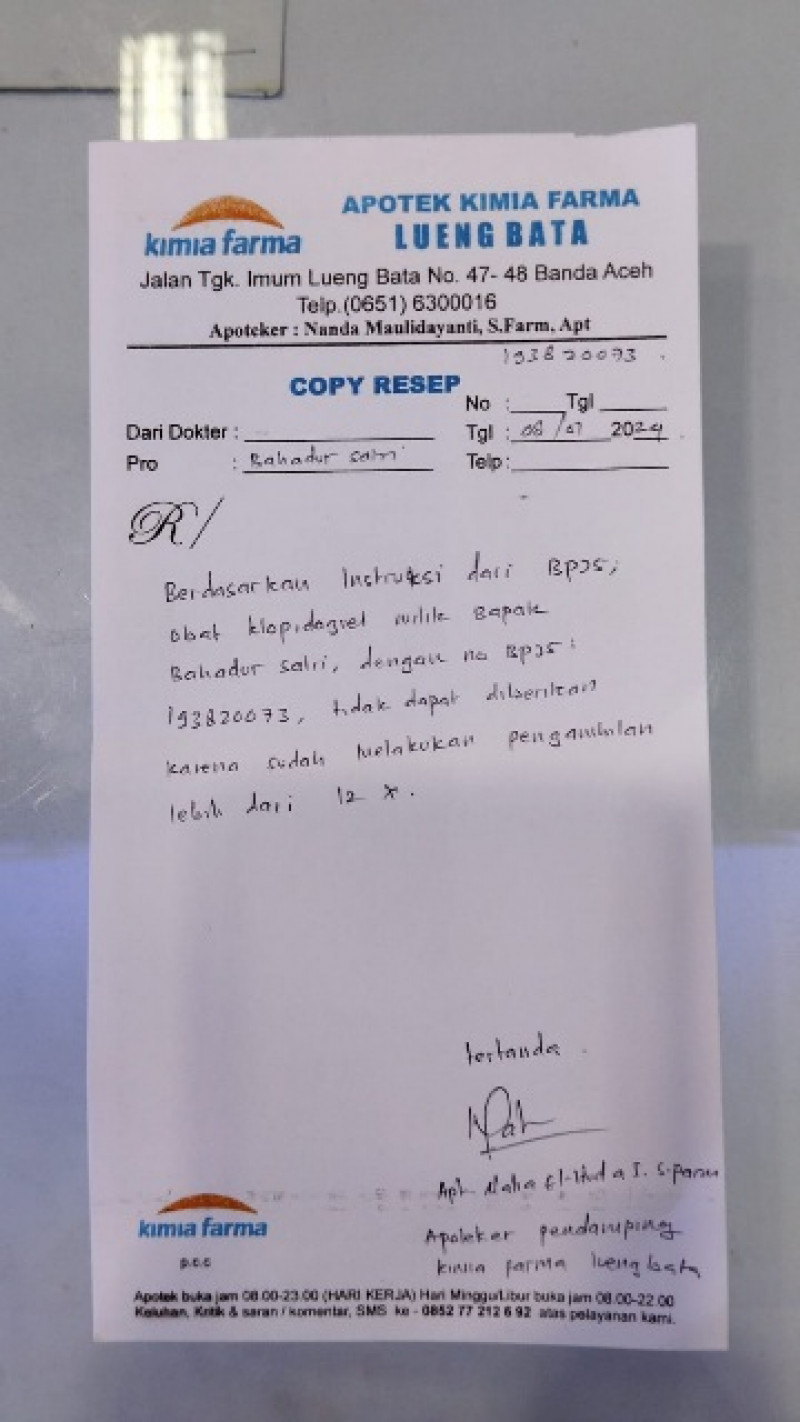 kimia farma
APOTEK KIMIA FARMA
LUENG BATA
Jalan Tgk. Imum Lueng Bata No. 47- 48 Banda Aceh
Telp.(0651) 6300016
Apoteker : Nanda Maulidayanti, S.Farm, Apt
193820073
COPY RESEP
No : Tgl
Dari Dokter :
Tgl : 08/07 2024
Pro : Bahadur Satri
Telp:
R/
Berdasarkan Instruksi dari BPJS,
obat klopidogrel milik Bapak
Bahadur Satri, dengan no BPJS :
193820073, tidak dapat diberikan
karena sudah melakukan pengambilan
lebih dari 12 x.
tertanda
Apt. El-Huda S.Farm
Apoteker pendamping
kimia farma lueng bata
kimia farma
p.c.c
Apotek buka jam 08.00-23.00 (HARI KERJA) Hari Minggu/Libur buka jam 08.00-22.00
Keluhan, Kritik & saran / komentar, SMS ke - 0852 77 212 6 92 atas pelayanan kami.